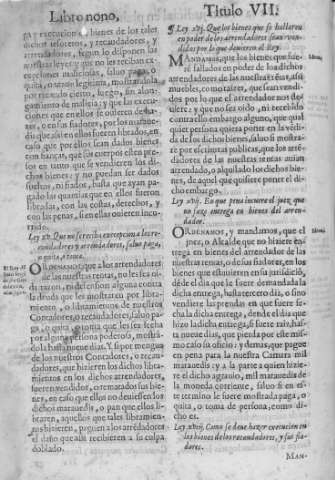 Libro nono,
Titulo VII.
ga y execucion en bienes de los tales
dichos tesoreros, y recaudadores, y
arrendadores, segun lo disponen las
nuestras leyes y que no les reciban ex-
cepciones maliciosas, saluo paga, o
quita, o razon legitima, mostrandola
por recaudo cierto, luego, sin alon-
gamiento de malicia; y que las execu-
ciones que en ellos se ouieren de ha-
zer, o en sus fiadores, que
do que assi en ellos fueren librados, en
caso que por ellos sean dados bienes
con fianças, que sus cuerpos esten pre-
sos en tanto que se venden los di-
chos bienes: y no puedan ser dados
sueltos, ni fiados, hasta que ayan pa-
gado las quantias que en ellos fueron
libradas, con las costas, derechos, y
con las penas, si en ellas ouieren incur-
rido.
Ley xv. Que no se reciba excepcion a los re-
caudadores y arrendadores, saluo paga,
o quita, o toma.
ORdenamos, que a los arrendadores
de las nuestras rentas, no les sea ni-
da razon, ni defension alguna contra
la deuda que les mostraren por libra-
miento, o libramientos de nuestros
Contadores, o recaudadores, saluo pa-
ga, o quita, o toma que les sea fecha
por alguna persona poderosa, mostra-
dola hasta nueue dias. Y si por mengua
de los nuestros Contadores, o recau-
dadores, que hizieren los dichos libra-
mientos en los dichos arrendadores,
fueren vendidos, o rematados sus bie-
nes, en caso que ellos no deuiessen los
dichos marauedis, o pan que ellos li-
braren, aquellos que tales libramien-
tos hizieren, paguen a los arrendadores
el daño que assi recibieren a su culpa
doblado.
Ley xvj. Que los bienes que se hallaren
en poder de los arrendadores sean vendi-
dos por lo que deuieren al Rey.
MAndamos, que los bienes que fue-
ren fallados en poder de los dichos
arrendadores de las nuestras rentas, assi
muebles, como raizes, que sean vendi-
dos por lo que el arrendador nos de-
uiere, y que no sea oido, ni recebido
contrario embargo alguno, que qual-
quier persona quiera poner en la vendi-
da de los dichos bienes, saluo si mostra-
re por escrituras publicas, que los ar-
rendadores de las nuestras rentas auian
arrendado, o alquilado los dichos bie-
nes, de aquel que quisiere poner el di-
cho embargo.
Ley xvij. En que pena incurre el juez que
no haze entrega en bienes del arren-
dador.
ORdenamos, y mandamos, que el
juez, o Alcalde que no hiziere en-
trega en bienes del arrendador de las
nuestras rentas, o de sus fiadores, en los
bienes que estuuieren en su jurisdicion,
desde el dia que le fuere demandada la
dicha entrega, hasta tercero dia, o si no
vendiere las prendas en que fuere fe-
cha la dicha entrega, desde el dia que
hizo la dicha entrega, si fuere raiz, has-
ta nueue dias, que pierda por este mis-
mo caso su oficio: y demas, que pague
en pena para la nuestra Camara mil
marauedis: y a la parte a quien hizie-
re el dicho agrauio, mil marauedis de
la moneda corriente, saluo si en es-
te termino le fuere mostrada paga, o
quita, o toma de persona, como di-
cho es.
Ley xviij. Como se deue hazer execucion en
los bienes de los recaudadores, y sus fia-
dores.
MAN-